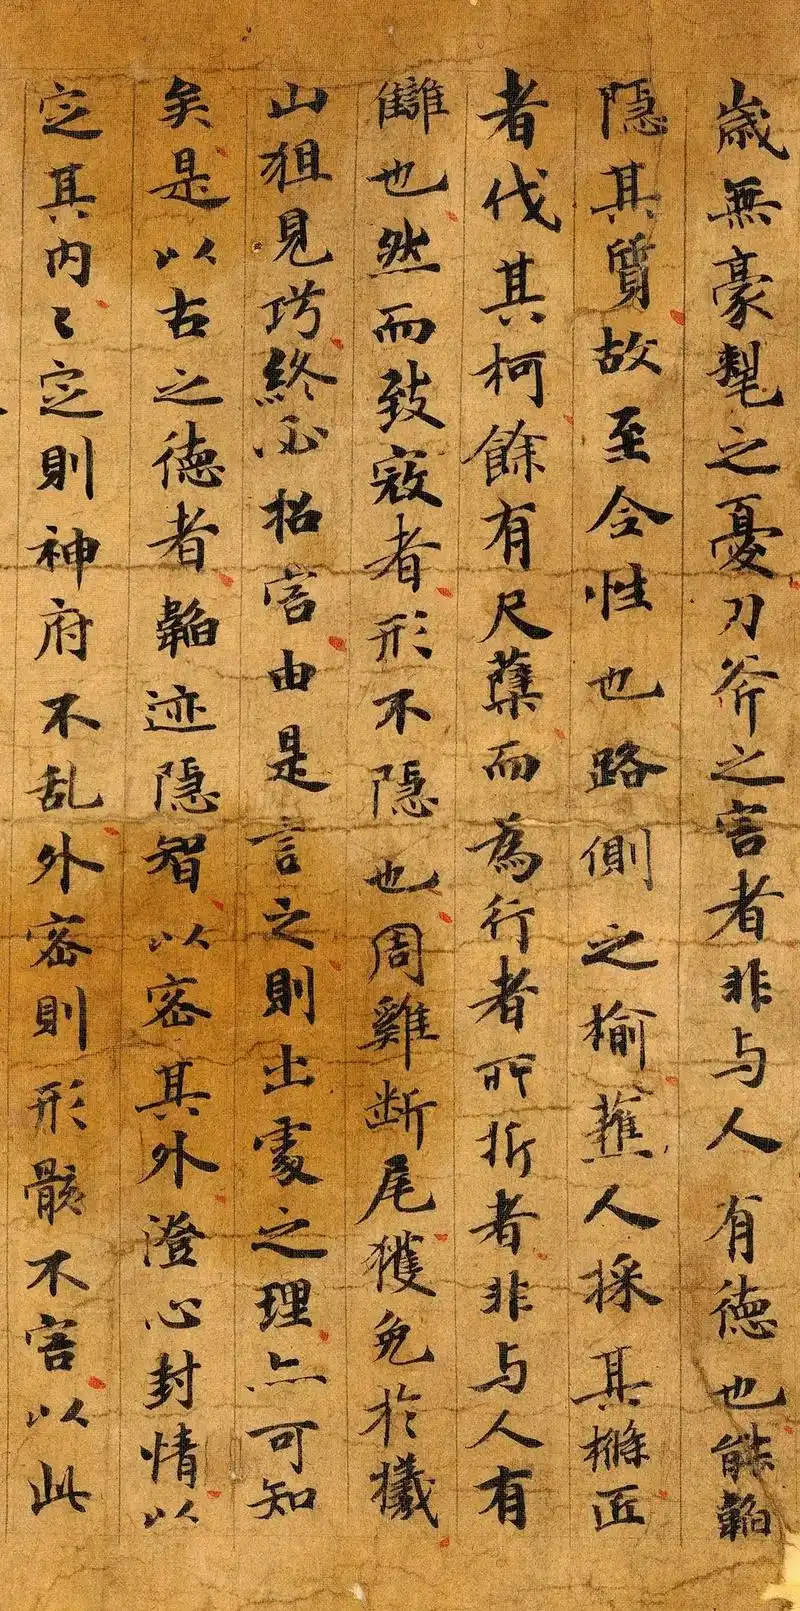 歲無豪氂之憂刀斧之害者非与人有德也能韜
隱其質故至令性也路側之榆蕉人採其樤匠
者伐其柯餘有尺蘖而為行者所折者非与人有
讎也然而致寇者形不隱也周雞断尾獲免於犧
山狙見巧終必招害由是言之則出處之理亦可知
矣是以古之德者韜迹隱智以密其外澄心封情以
定其内〻定則神府不乱外密則形骸不害以此